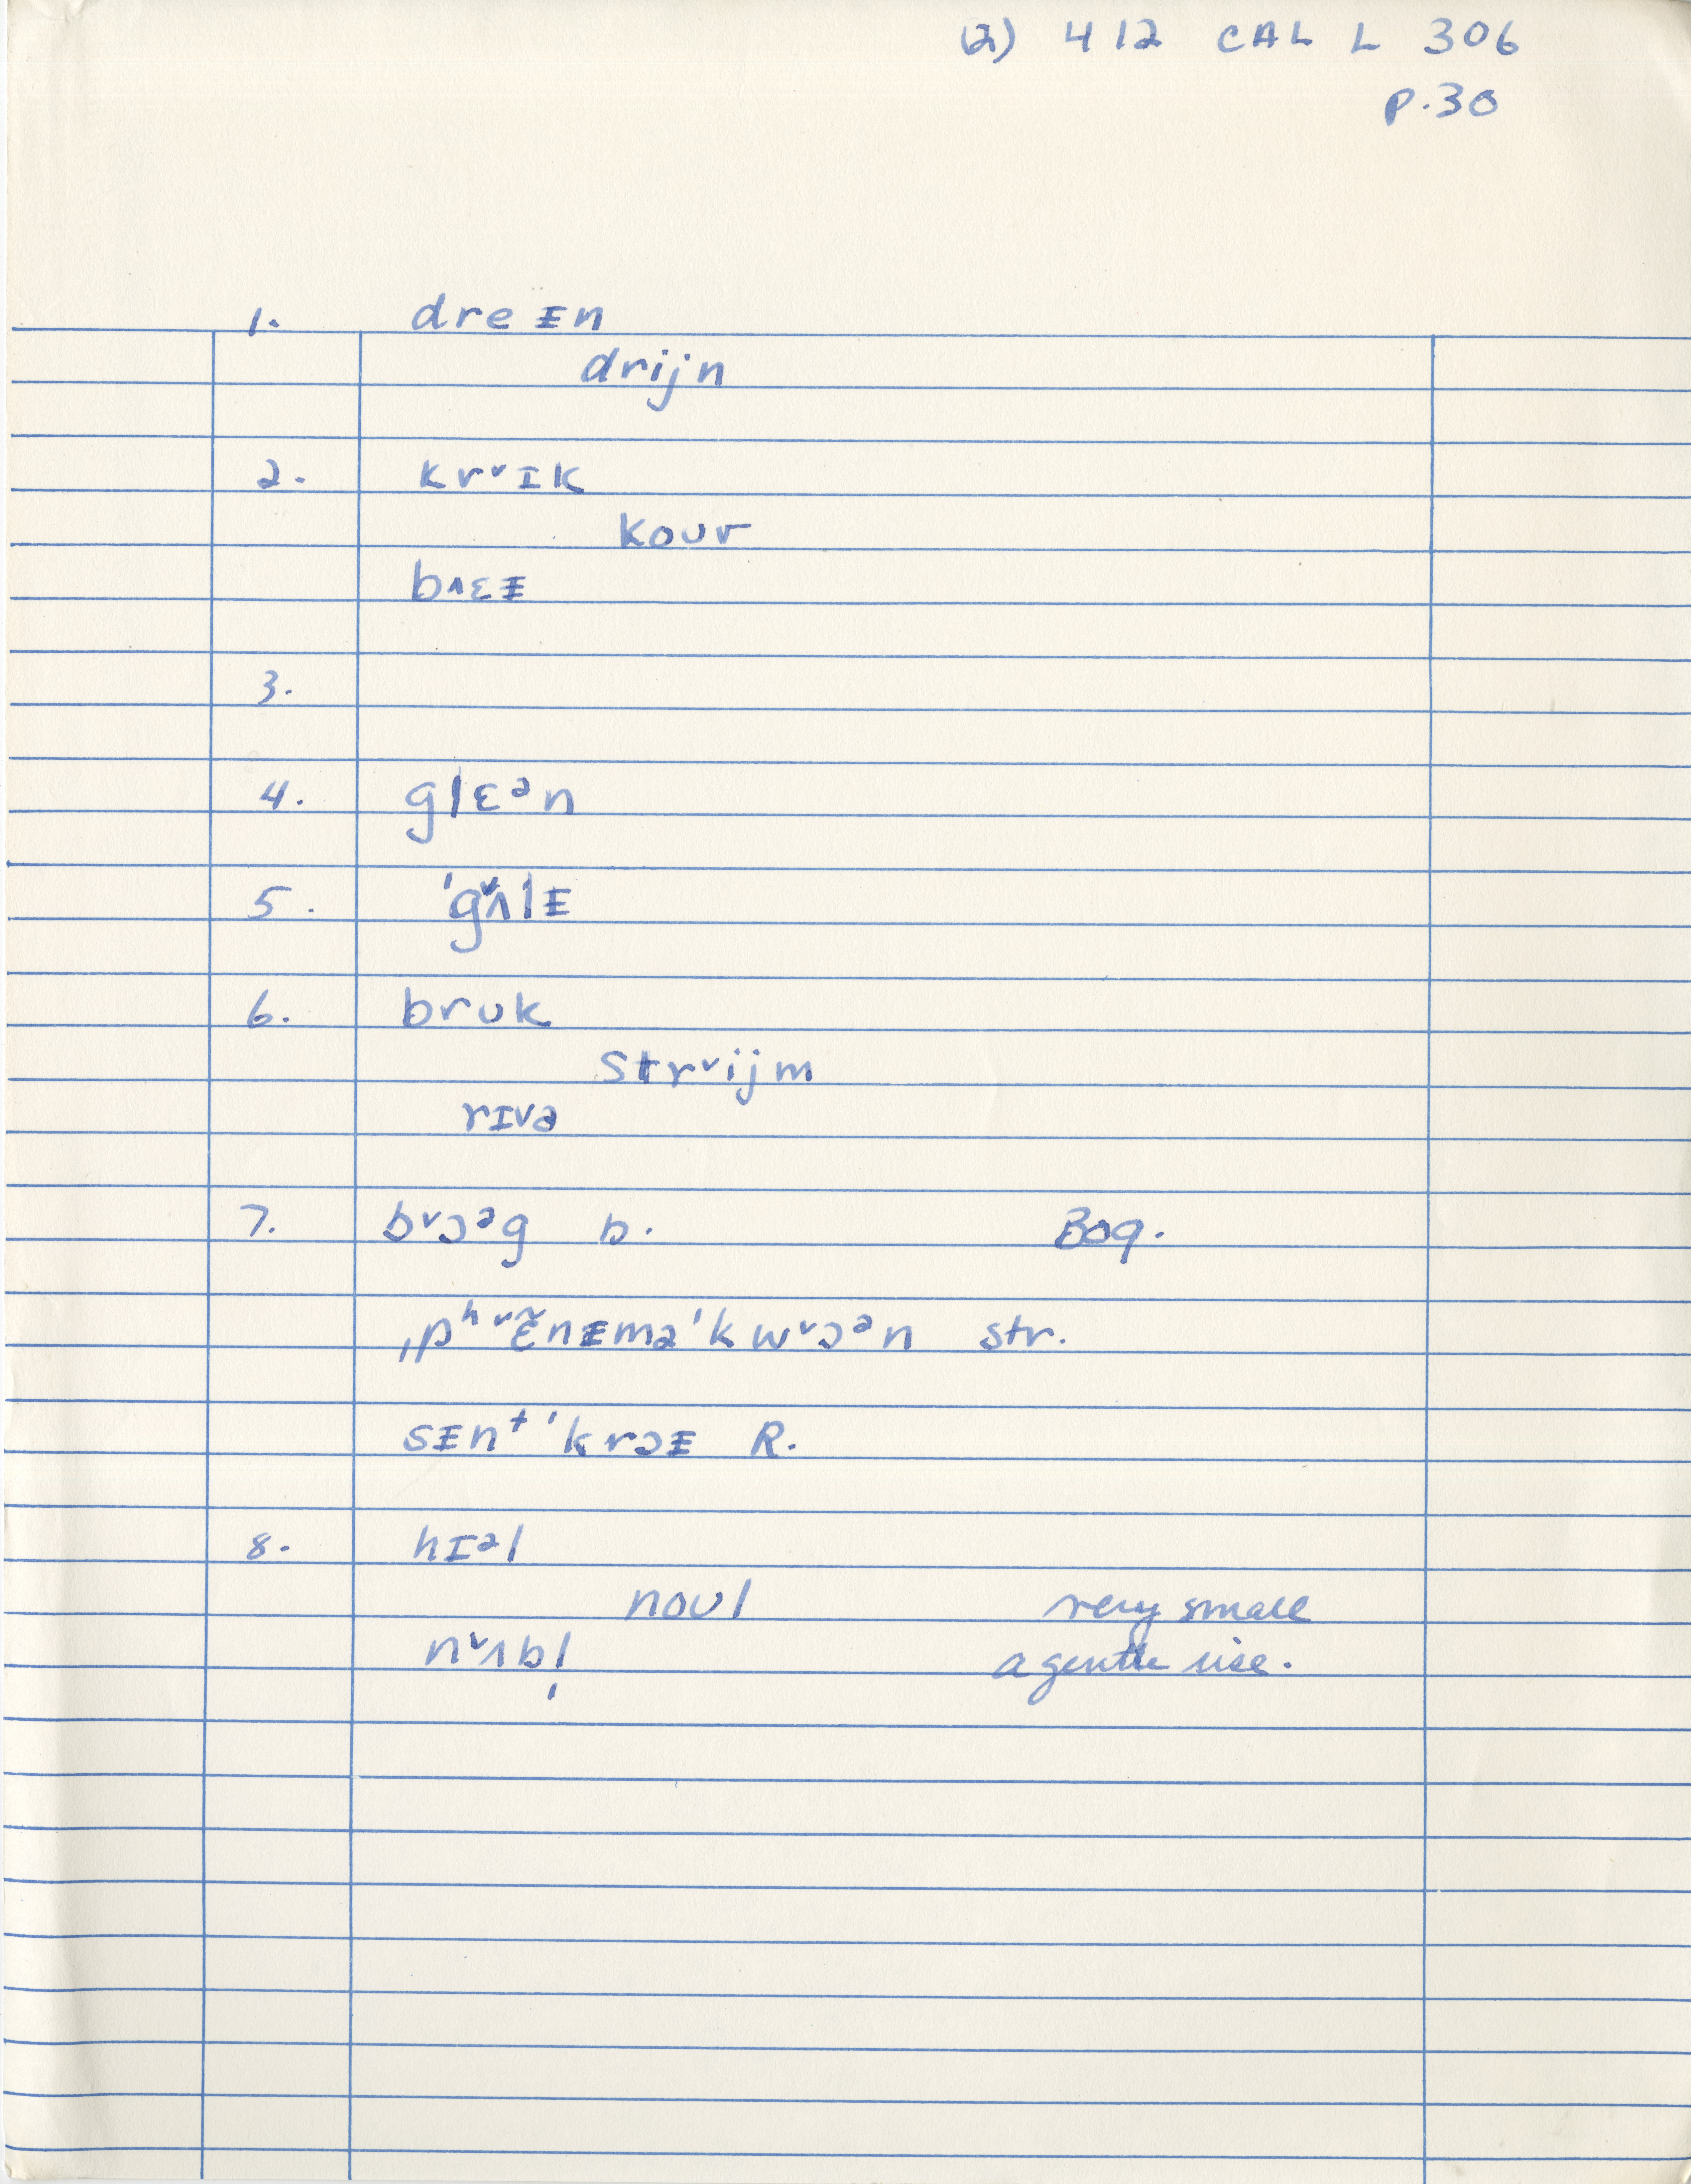 (2) 412 CAL L 306
p. 30
1. dreᵻn
drijn
2. krᵛɪk
koʊr
bʌɛᵻ
3.
4. glɛᵊn
5. ˈgᵛʌlᵻ
6. brʊk
strᵛijm
rɪvə
7. bᵛɔᵊg b. Bog.
ˌpʰᵛɛ̃nᵻməˈkwᵛɔᵊn str.
sᵻnᵗˈkrɔᵻ R.
8. hɪᵊl
noʊl very small
nᵛʌbl̩ a gentle rise.